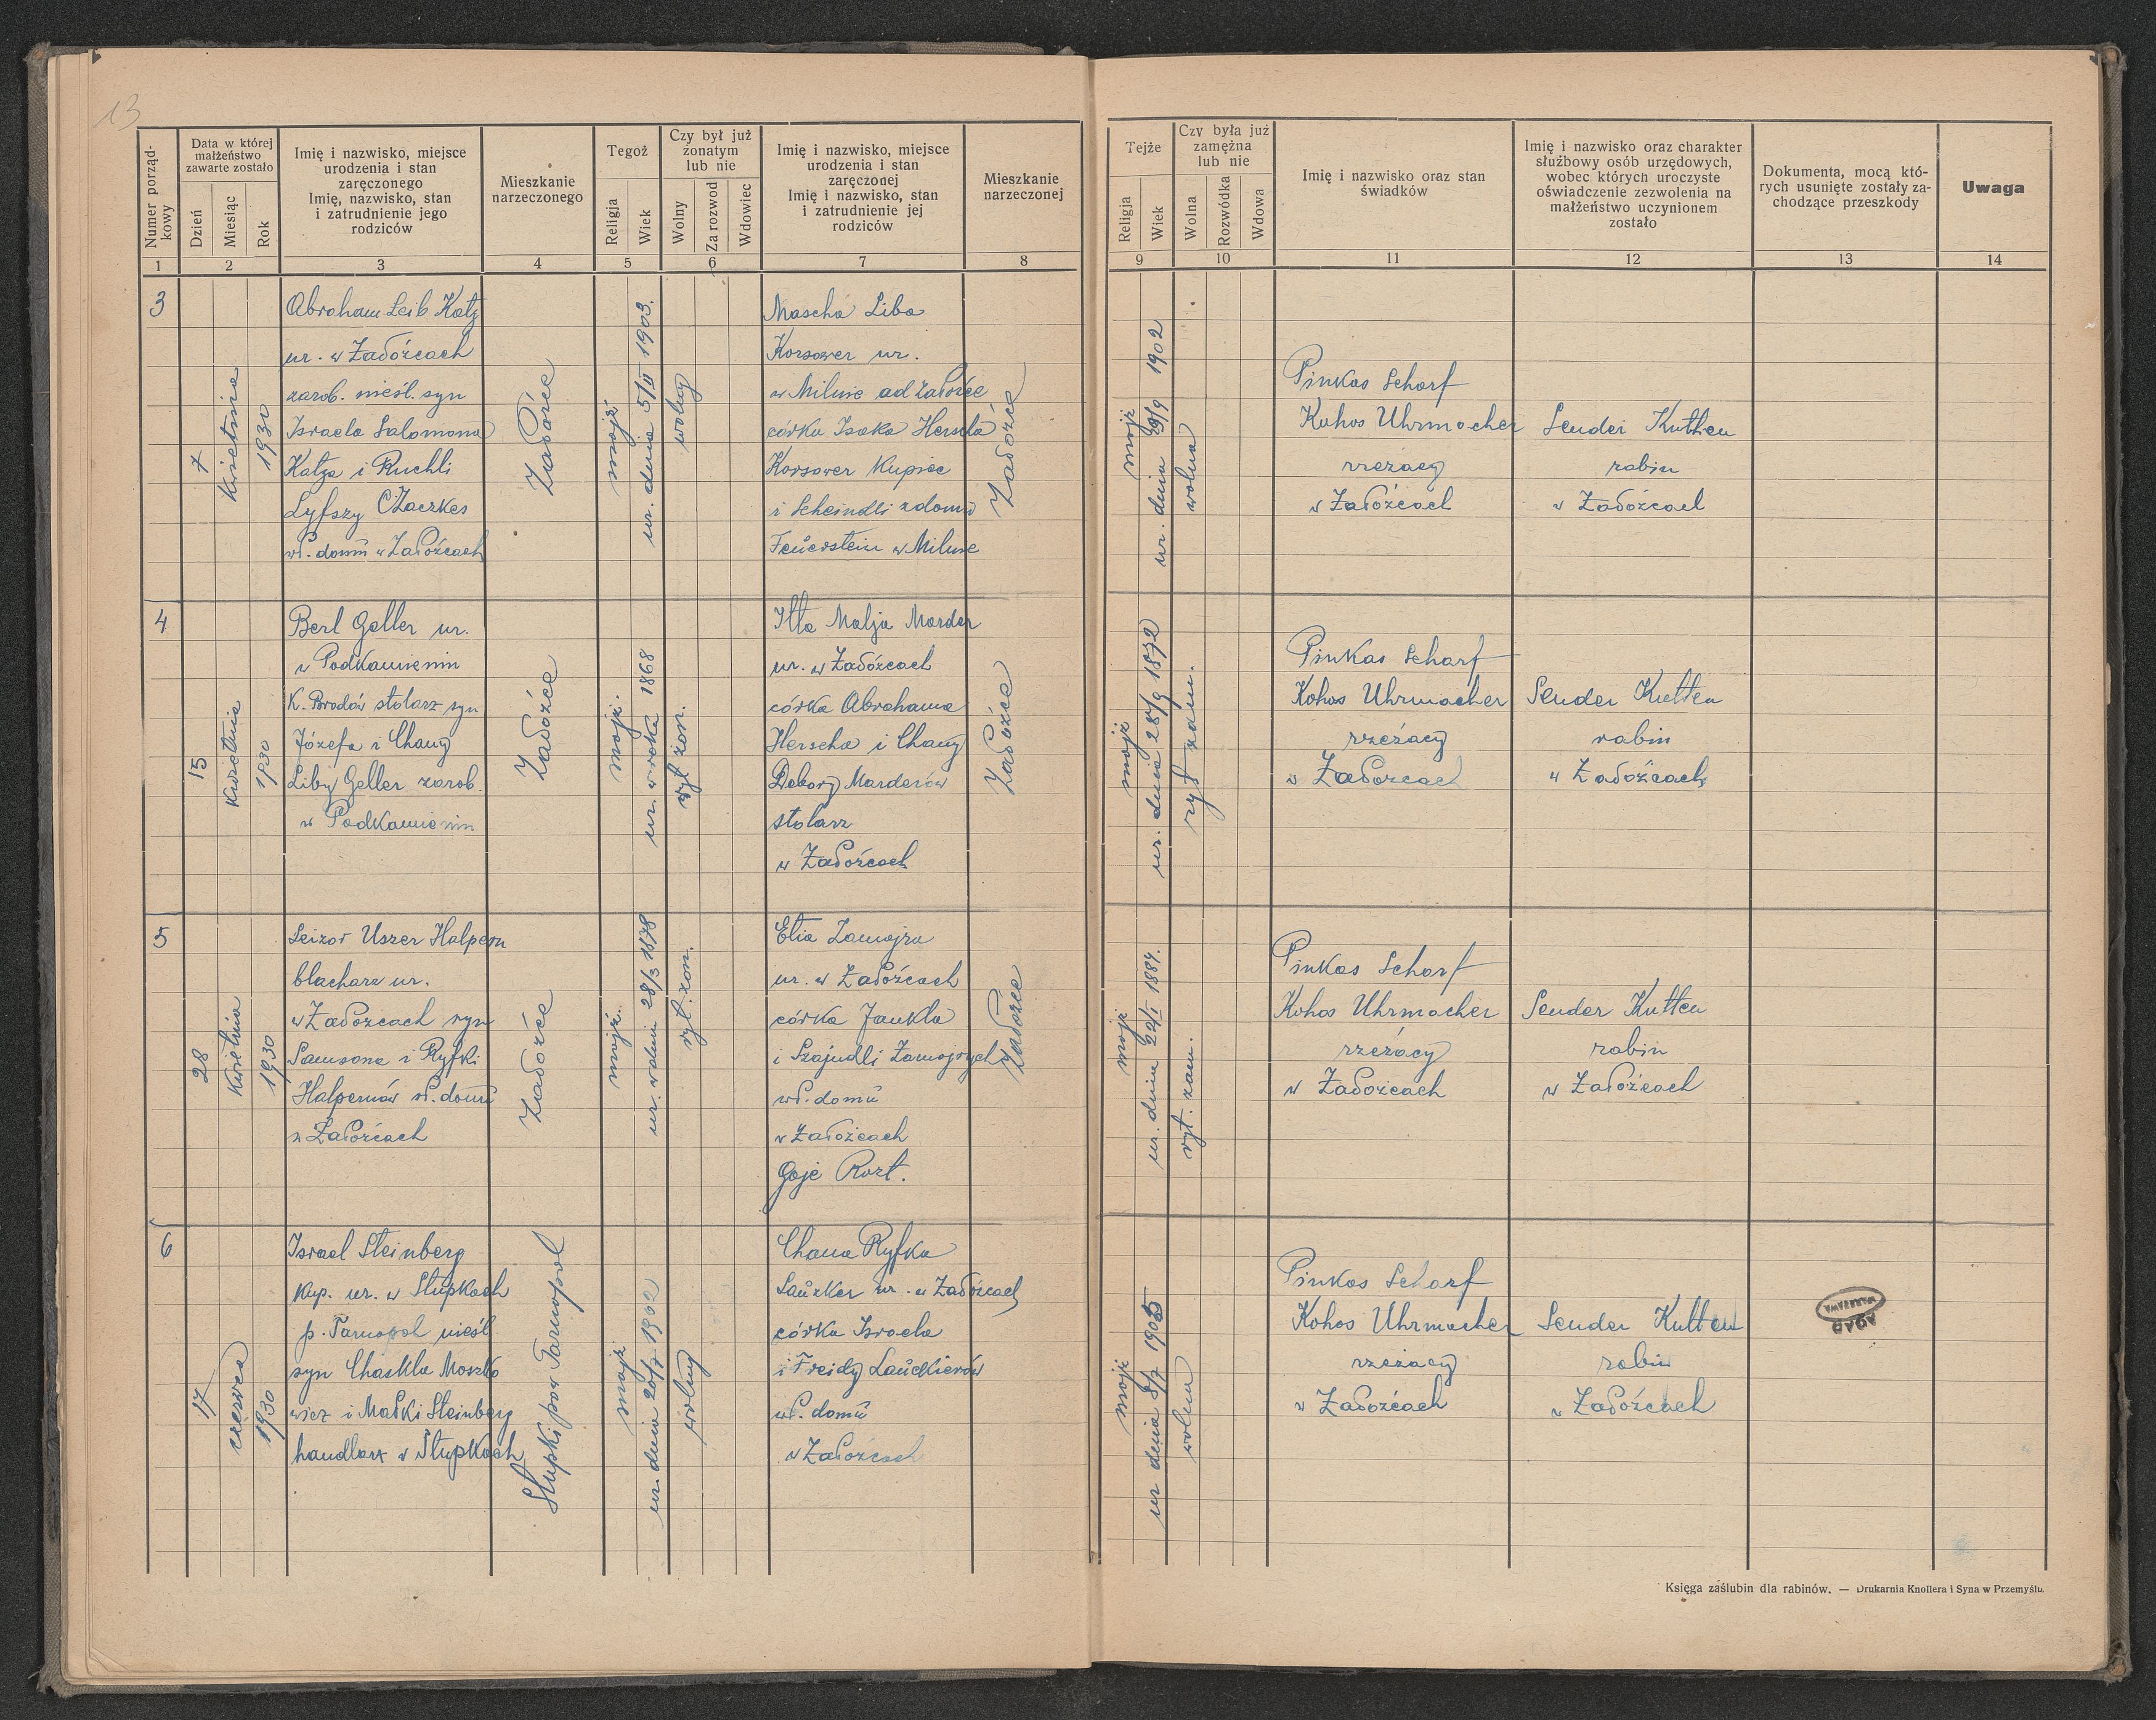 13
Numer porząd-
kowy
Data w której
małżeństwo
zawarte zostało
Dzień
Miesiąc
Rok
Imię i nazwisko, miejsce
urodzenia i stan
zaręczonego
Imię, nazwisko, stan
i zatrudnienie jego
rodziców
Mieszkanie
narzeczonego
Tegoż
Religja
Wiek
Czy był już
żonatym
lub nie
Wolny
Za rozwod
Wdowiec
Imię i nazwisko, miejsce
urodzenia i stan
zaręczonej
Imię i nazwisko, stan
i zatrudnienie jej
rodziców
Mieszkanie
narzeczonej
Tejże
Religja
Wiek
Czy była już
zamężna
lub nie
Wolna
Rozwódka
Wdowa
Imię i nazwisko oraz stan
świadków
Imię i nazwisko oraz charakter
służbowy osób urzędowych,
wobec których uroczyste
oświadczenie zezwolenia na
małżeństwo uczynionem
zostało
Dokumenta, mocą któ-
rych usunięte zostały za-
chodzące przeszkody
Uwaga
1 2 3 4 5 6 7 8 9 10 11 12 13 14
3
7
Kwietnia
1930
Abraham Leib Katz
ur. w Załoźcach
zarob. nieśl. syn
Israela Salomona
Katza i Ruchli
Lyfszy Czaczkes
wł. domu w Załoźcach
Załoźce
mojż
ur. dnia 5/II 1903.
wolny
Mascha Liba
Korsower ur.
w Milnie ad Załoźce
córka Isaka Herscha
Korsower Kupiec
i Scheindli z domu
Feuerstein w Milnie
Załoźce
mojż
ur. dnia 1902
wolna
Pinkas Scharf
Kuhos Uhrmacher
rzezacy
w Załoźcach
Sender Kutten
rabin
w Załoźcach
4
15
Kwietnia
1930
Berl Geller ur.
w Podkamieniu
K. Brodów stolarz syn
Józefa i Chany
Liby Geller zarob.
w Podkamieniu
Załoźce
mojż.
ur. w roku 1868
ryt. żon.
Itta Malja Marder
ur. w Załoźcach
córka Abrahama
Herscha i Chany
Debory Marderów
stolarz
w Załoźcach
Załoźce
mojż
ur. dnia 28/9 1872
ryt. zam.
Pinkas Scharf
Kohos Uhrmacher
rzezacy
w Załozcach
Sender Kutten
rabin
w Załoźcach
5
28
Kwietnia
1930
Leizor Uszer Halpern
blacharz ur.
w Załozcach syn
Samsona i Ryfki
Halpernów wł. domu
w Załoźcach
Załoźce
mojż.
ur. w dniu 28/3 1878
ryt. żon.
Etia Zamojra
ur. w Załoźcach
córka Jankla
i Szajndli Zamojrych
wł. domu
w Załoźcach
Załoźce
mojż
ur. dnia 22/I 1884.
ryt. zam.
Pinkas Scharf
Kohos Uhrmacher
rzezacy
w Załozcach
Sender Kutten
rabin
w Załoźcach
6
17
czerwca
1930
Israel Steinberg
Kup. ur. w Stupkach
p. Tarnopol nieśl
syn Chaskla Moszko
wicz i Małki Steinberg
handlarz w Stupkach
Stupki pow Tarnopol
mojż
ur. dnia 20/7 1902
wolny
Chana Ryfka
Lauzker ur. w Załoźcach
córka Israela
i Freidy
wł. domu
w Załoźcach
mojż
ur dnia 8/7 1905
wolna
Pinkas Scharf
Kohos Uhrmacher
rzezacy
w Załoźcach
Sender Kutten
rabin
w Załoźcach
AGAD
WARSZAWA
Księga zaślubin dla rabinów. — Drukarnia Knollera i Syna w Przemyślu.